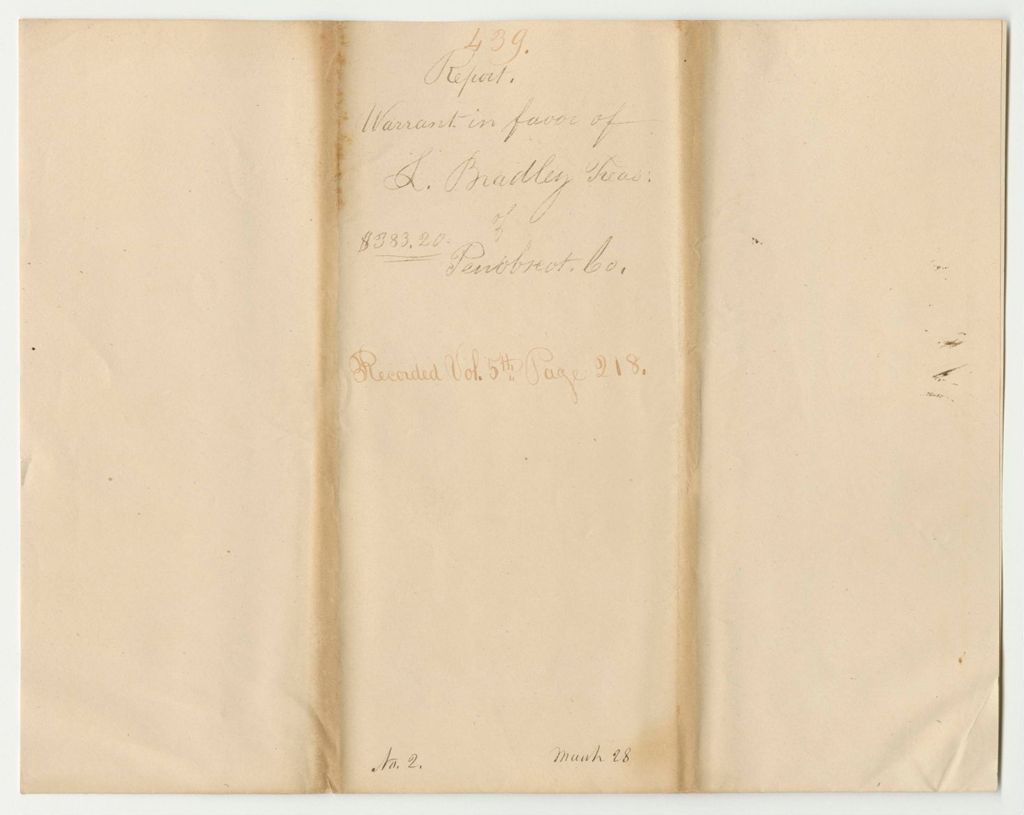 439.
Report.
Warrant in favor of
L. Bradley Treas:
of
$383.20.
Penobscot. Co.
Recorded Vol. 5th. Page 218.
No. 2. March 28